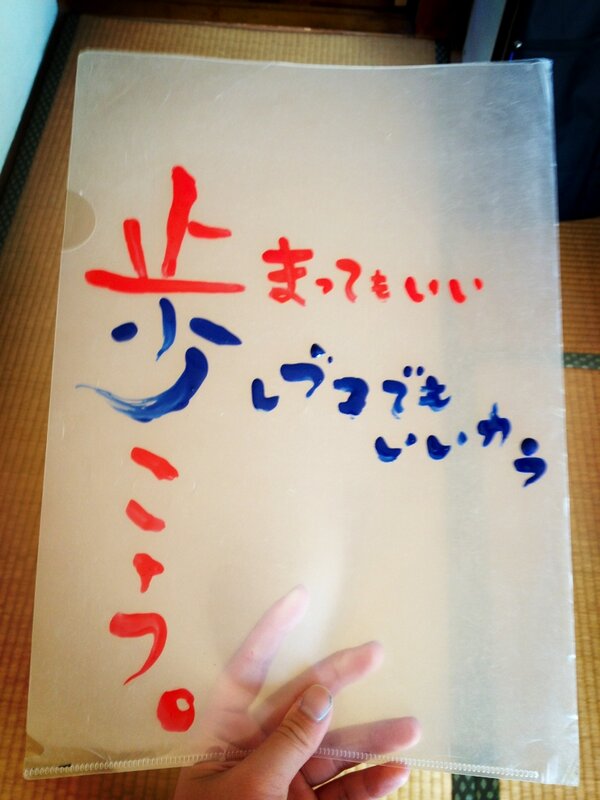 歩こう。
まってもいい
しづつでも
いいから